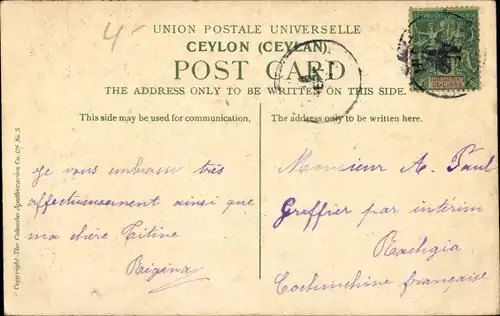 4
UNION POSTALE UNIVERSELLE
CEYLON (CEYLAN)
POST CARD
THE ADDRESS ONLY TO BE WRITTEN ON THIS SIDE.
This side may be used for communication.
Je vous embrasse très
affectueusement ainsi que
ma chère Titine
Régina
The address only to be written here.
Monsieur A. Paul
Greffier par intérim
Rachgia
Cochinchine française
Copyright-The Colombo Apothecaries Co. Ld No. 5